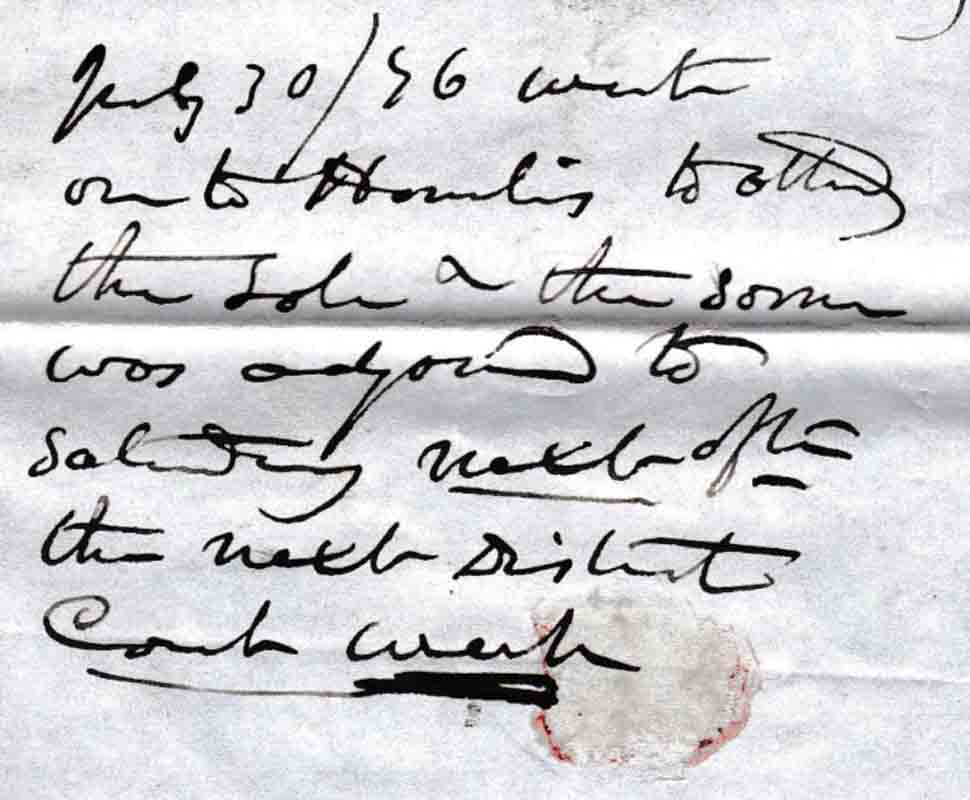 July 30/56 went
on to to attend
the Sale & the same
was adjourd to
Saturday next after
the next District
Court week